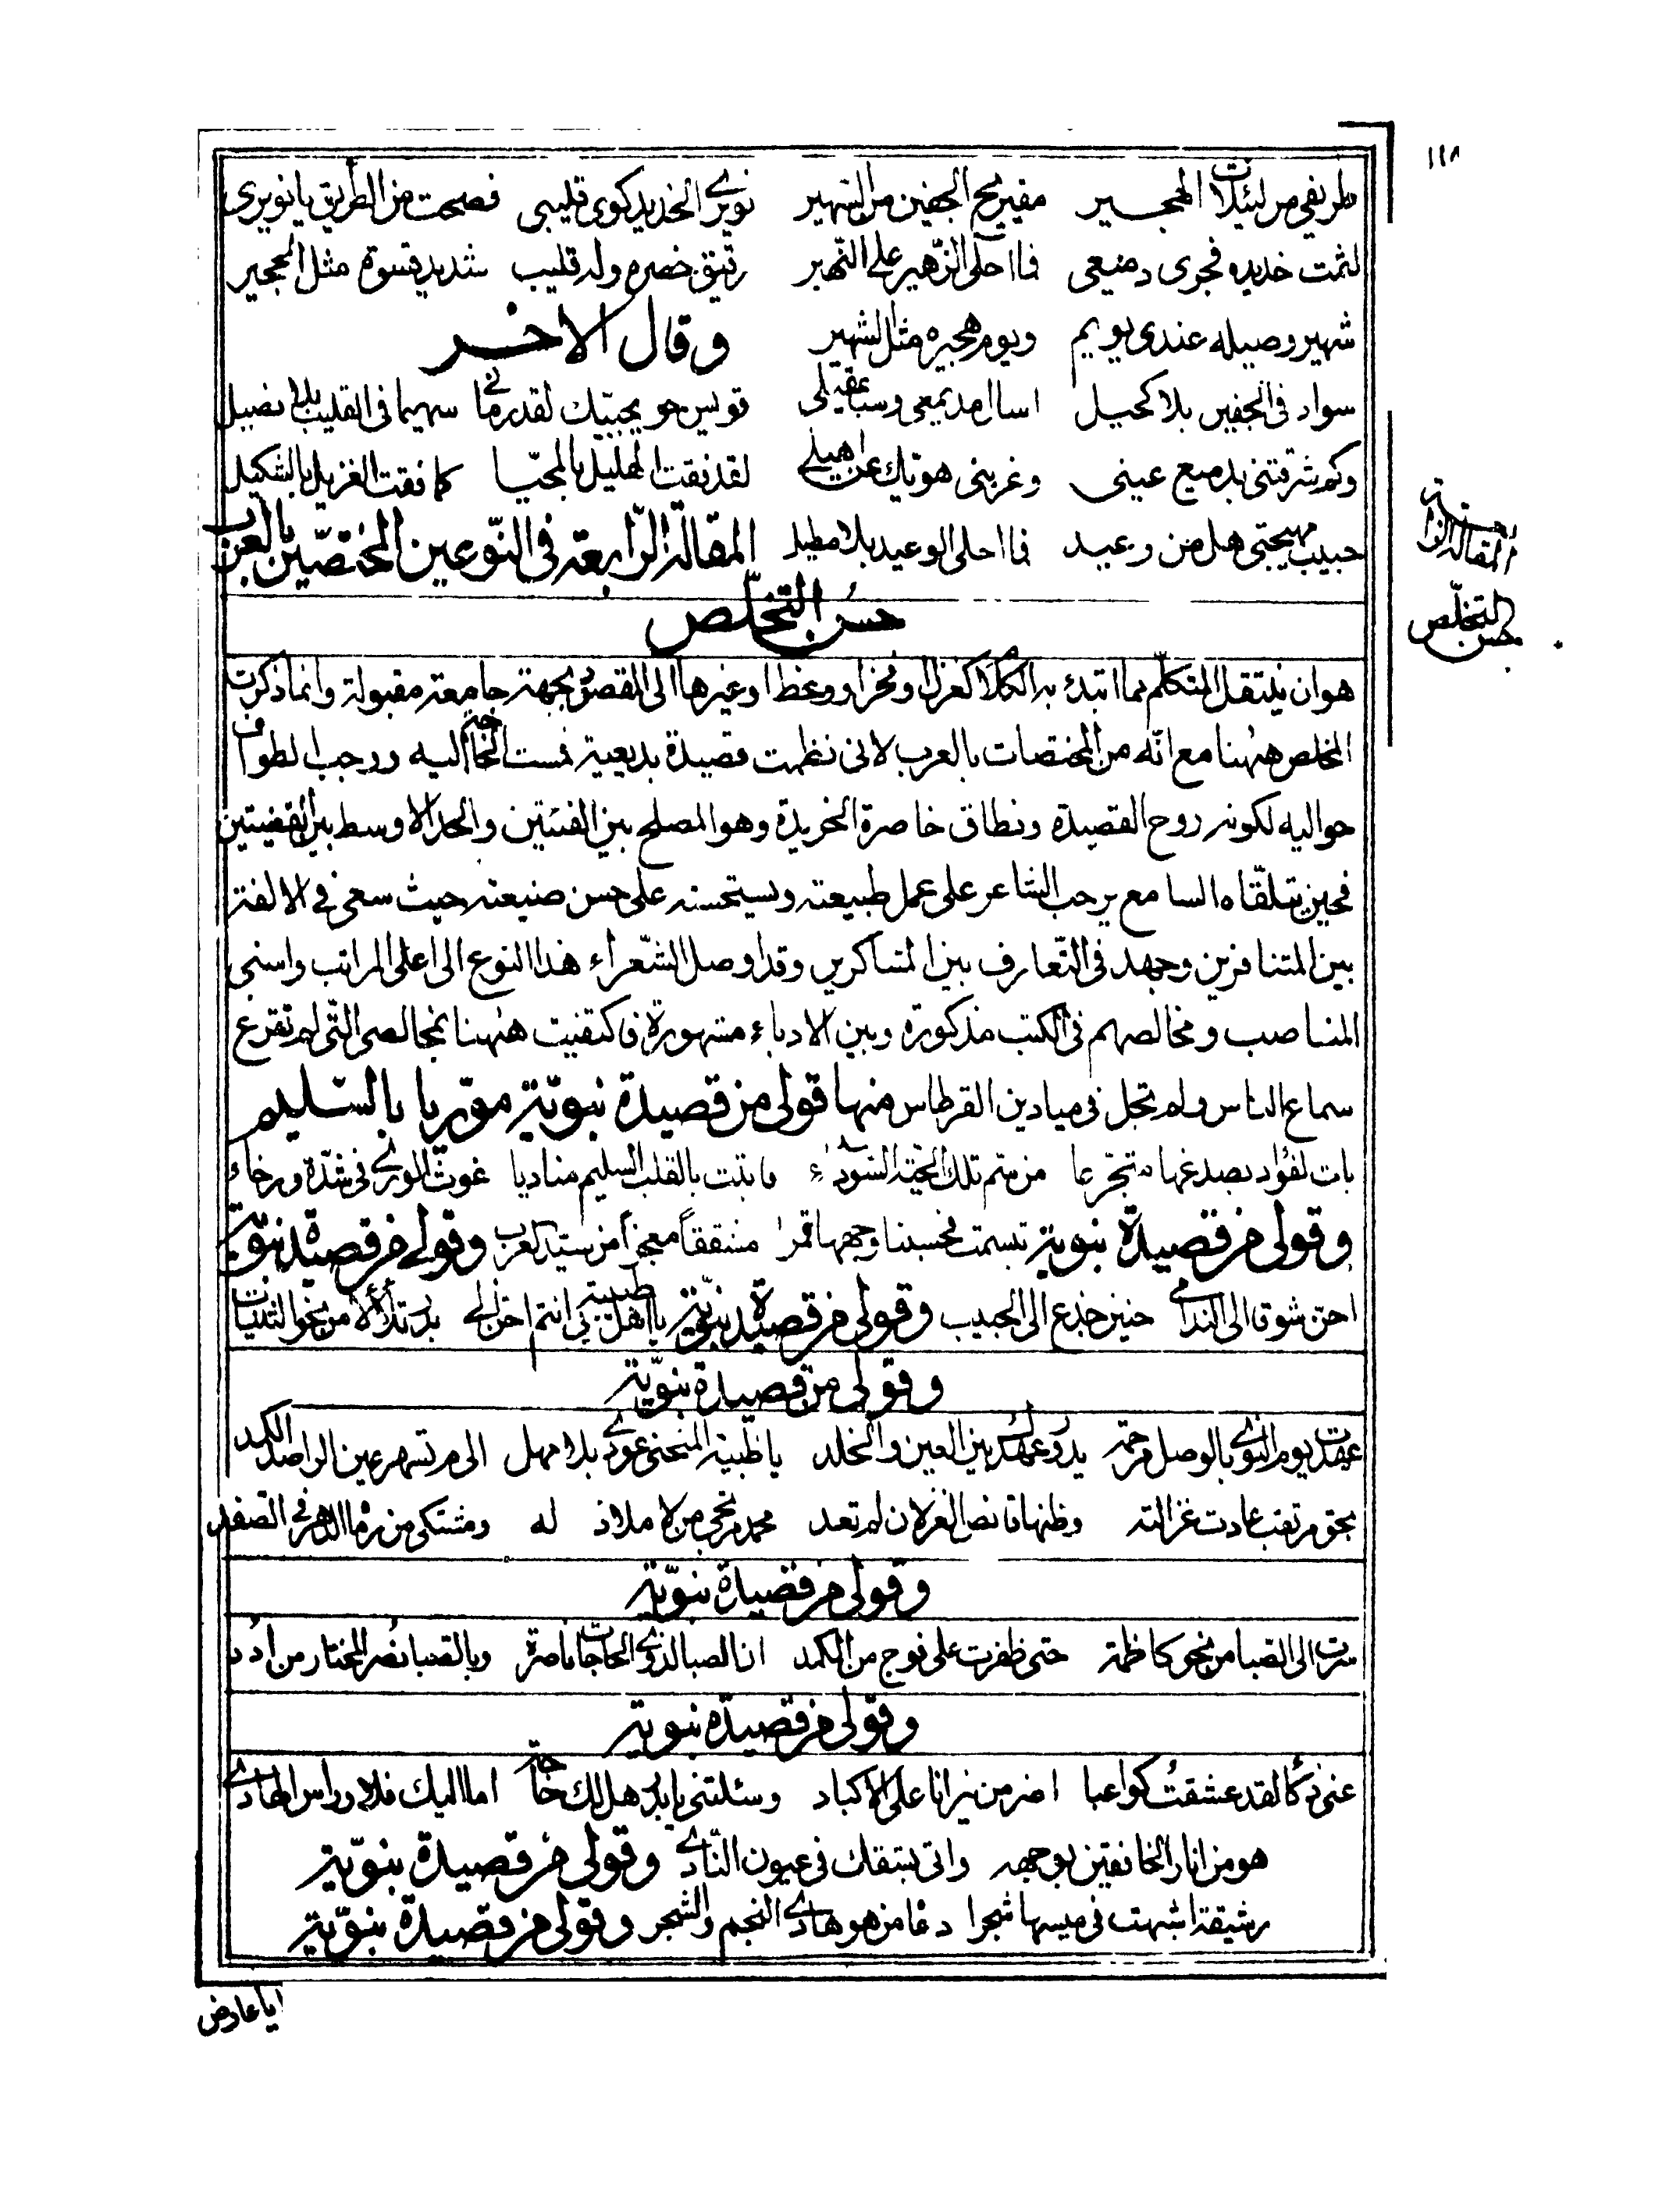 ١١٨
طريفي من لئيلات الهجير مقيريح الجفين من السهير نويري الخديد كوى قليبى فصحت من الطريق يا نويرى
لثمت خديده فجرى دميعى فما احلى الزهير على النهير رقيق خصره وله قليب شديد قسوة مثل الحجير
شهير وصيله عندى يويم ويوم هجيره مثل الشهير وقال الاخر
سواد فى الجفين بلا كحيل اسال مديمعى وسبا عقيلى قويس حويجبيك لقد رمانى سهيما فى القليب بلا نصيل
وكم شرقتنى بدميع عينى وغربنى هويك عن اهيلى لقد فقت الهليل بالمحيا كما فقت الغزيل بالشكيل
حبيب مهيجتى هل من وعيد فما احلى الوعيد بلا مطيل المقالة الرابعة فى النوعين المختصين بالعرب
المقالة الرابعة
حسن التخلص
حسن التخلص
هو ان ينتقل المتكلم مما ابتدئ به الكلام كغزل او فخر او وعظ او غيرها الى المقصود بجهة جامعة مقبولة وانما ذكرت
المخلص ههنا مع انه من المختصات بالعرب لانى نظمت قصيدة بديعية فمست الحاجة اليه ووجب الطواف
حواليه لكونه روح القصيدة ونطاق خاصرة الخريدة وهو المصلح بين الفئتين والحد الاوسط بين القضيتين
فحين يتلقاه السامع يرحب الشاعر على عمل طبيعته ويستحسنه على حسن صنيعته حيث سعى فى الالفة
بين المتنافرين وجهد فى التعارف بين المتناكرين وقد اوصل الشعراء هذا النوع الى اعلى المراتب واسنى
المناصب ومخالصهم فى الكتب مذكورة وبين الادباء مشهورة فاكتفيت ههنا بمخالصى التى لم تقرع
سماع الناس ولم تجل فى ميادين القرطاس منها قولى من قصيدة نبوية موريا بالسليم
بات الفؤاد بصدغها متجرعا من سم تلك الحية السوداء فابتت بالقلب السليم مناديا غوث الورى فى شدة ورخاء
وقولى من قصيدة نبوية تبسمت فحسبنا وجهها قمرا منشققا معجزا من سيد العرب وقولى من قصيدة نبوية
احن شوقا الى الندامى حنين جذع الى الحبيب وقولى من قصيدة نبوية يا اهل طيبة انتم اخذ بدر تلألأ من نحو الثنيات
وقولى من قصيدة نبوية
عقدت يوم النوى بالوصل مرحمة بين العين والخلد يا ظبية المنحنى عودى بلا مهل الى م تسهر عين الراصد الكمد
بحق مرتقب عادت غزالته وظنها قانص الغزلان لم تعد محمد مرتجى من لا ملاذ له ومشتكى من رماه الدهر فى الصفد
وقولى من قصيدة نبوية
سرت الى الصبا من نحو كاظمة حتى ظفرت على فوج من الكمد ان الصبا لذوى الحاجات ناصرة وبالصبا نصر المختار من ادد
وقولى من قصيدة نبوية
لقد عشقت كواعبا اضرمن نيرانا على الاكباد وسئلتنى يا بدر هل لك حاجة اما اليك فلا وراس الهادى
هو من انار الخافقين بوجهه واتى بشقك فى عيون النادى وقولى من قصيدة نبوية
رشيقة اشبهت فى ميسها شجرا دعا من هو هادى النجم والشجر وقولى من قصيدة نبوية
ايا عارض